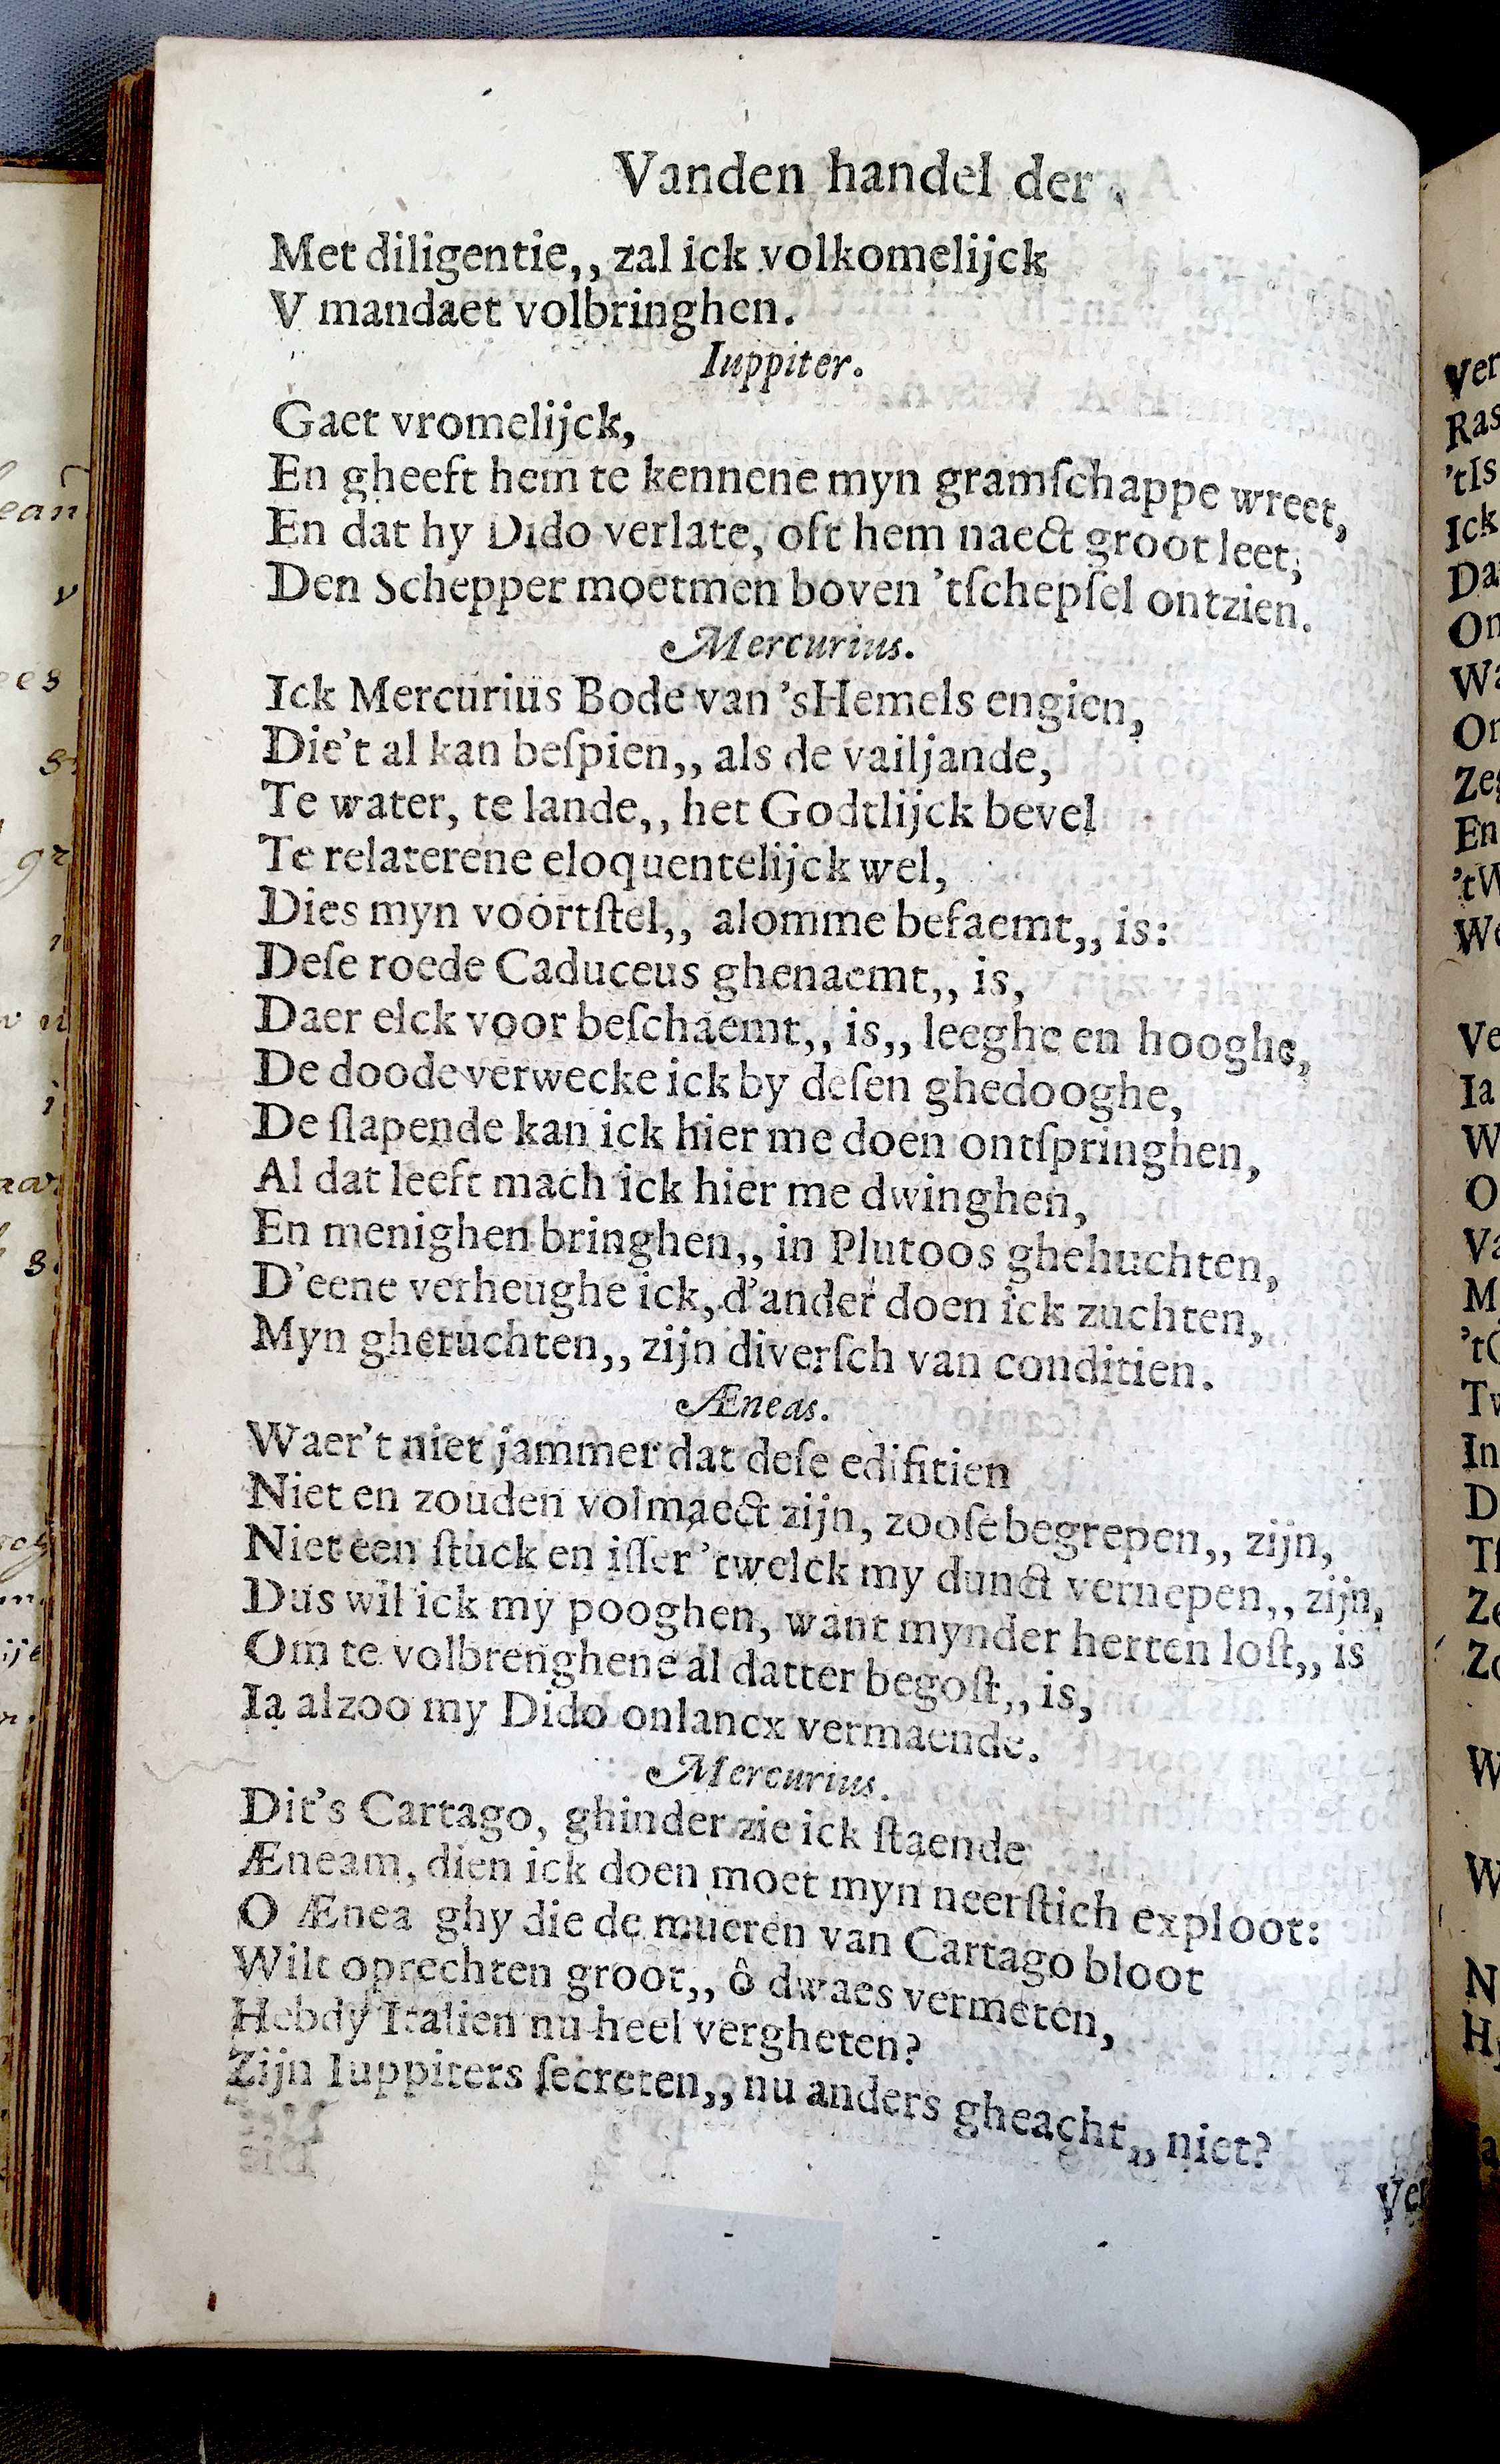 Vanden handel der
Met diligentie,, zal ick volkomelijck
V mandaet volbringhen.
Iuppiter.
Gaet vromelijck,
En gheeft hem te kennene myn gramſchappe wreet,
En dat hy Dido verlate, oft hem naect groot leet;
Den Schepper moetmen boven 'tſchepſel ontzien.
Mercurius.
Ick Mercurius Bode van 'sHemels engien,
Die't al kan beſpien,, als de vailjande,
Te water, te lande,, het Godtlijck bevel
Te relaterene eloquentelijck wel,
Dies myn voortſtel,, alomme befaemt,, is:
Deſe roede Caduceus ghenaemt,, is,
Daer elck voor beſchaemt,, is,, leeghe en hooghe,
De doode verwecke ick by deſen ghedooghe,
De ſlapende kan ick hier me doen ontſpringhen,
Al dat leeft mach ick hier me dwinghen,
En menighen bringhen,, in Plutoos ghehuchten,
D'eene verheughe ick, d'ander doen ick zuchten,
Myn gheruchten,, zijn diverſch van conditien.
Æneas.
Waer't niet jammer dat deſe edifitien
Niet en zouden volmaect zijn, zooſe begrepen,, zijn,
Niet een ſtuck en iſſer 'twelck my dunct vernepen,, zijn,
Dus wil ick my pooghen, want mynder herten loſt,, is
Om te volbrenghene al datter begoſt,, is,
Ia alzoo my Dido onlancx vermaende.
Mercurius.
Dit's Cartago, ghinder zie ick ſtaende
Æneam, dien ick doen moet myn neerſtich exploot:
O Ænea ghy die de mueren van Cartago bloot
Wilt oprechten groot,, ô dwaes vermeten,
Hebdy Italien nu heel vergheten?
Zijn Iuppiters ſecreten,, nu anders gheacht,, niet?
Ver